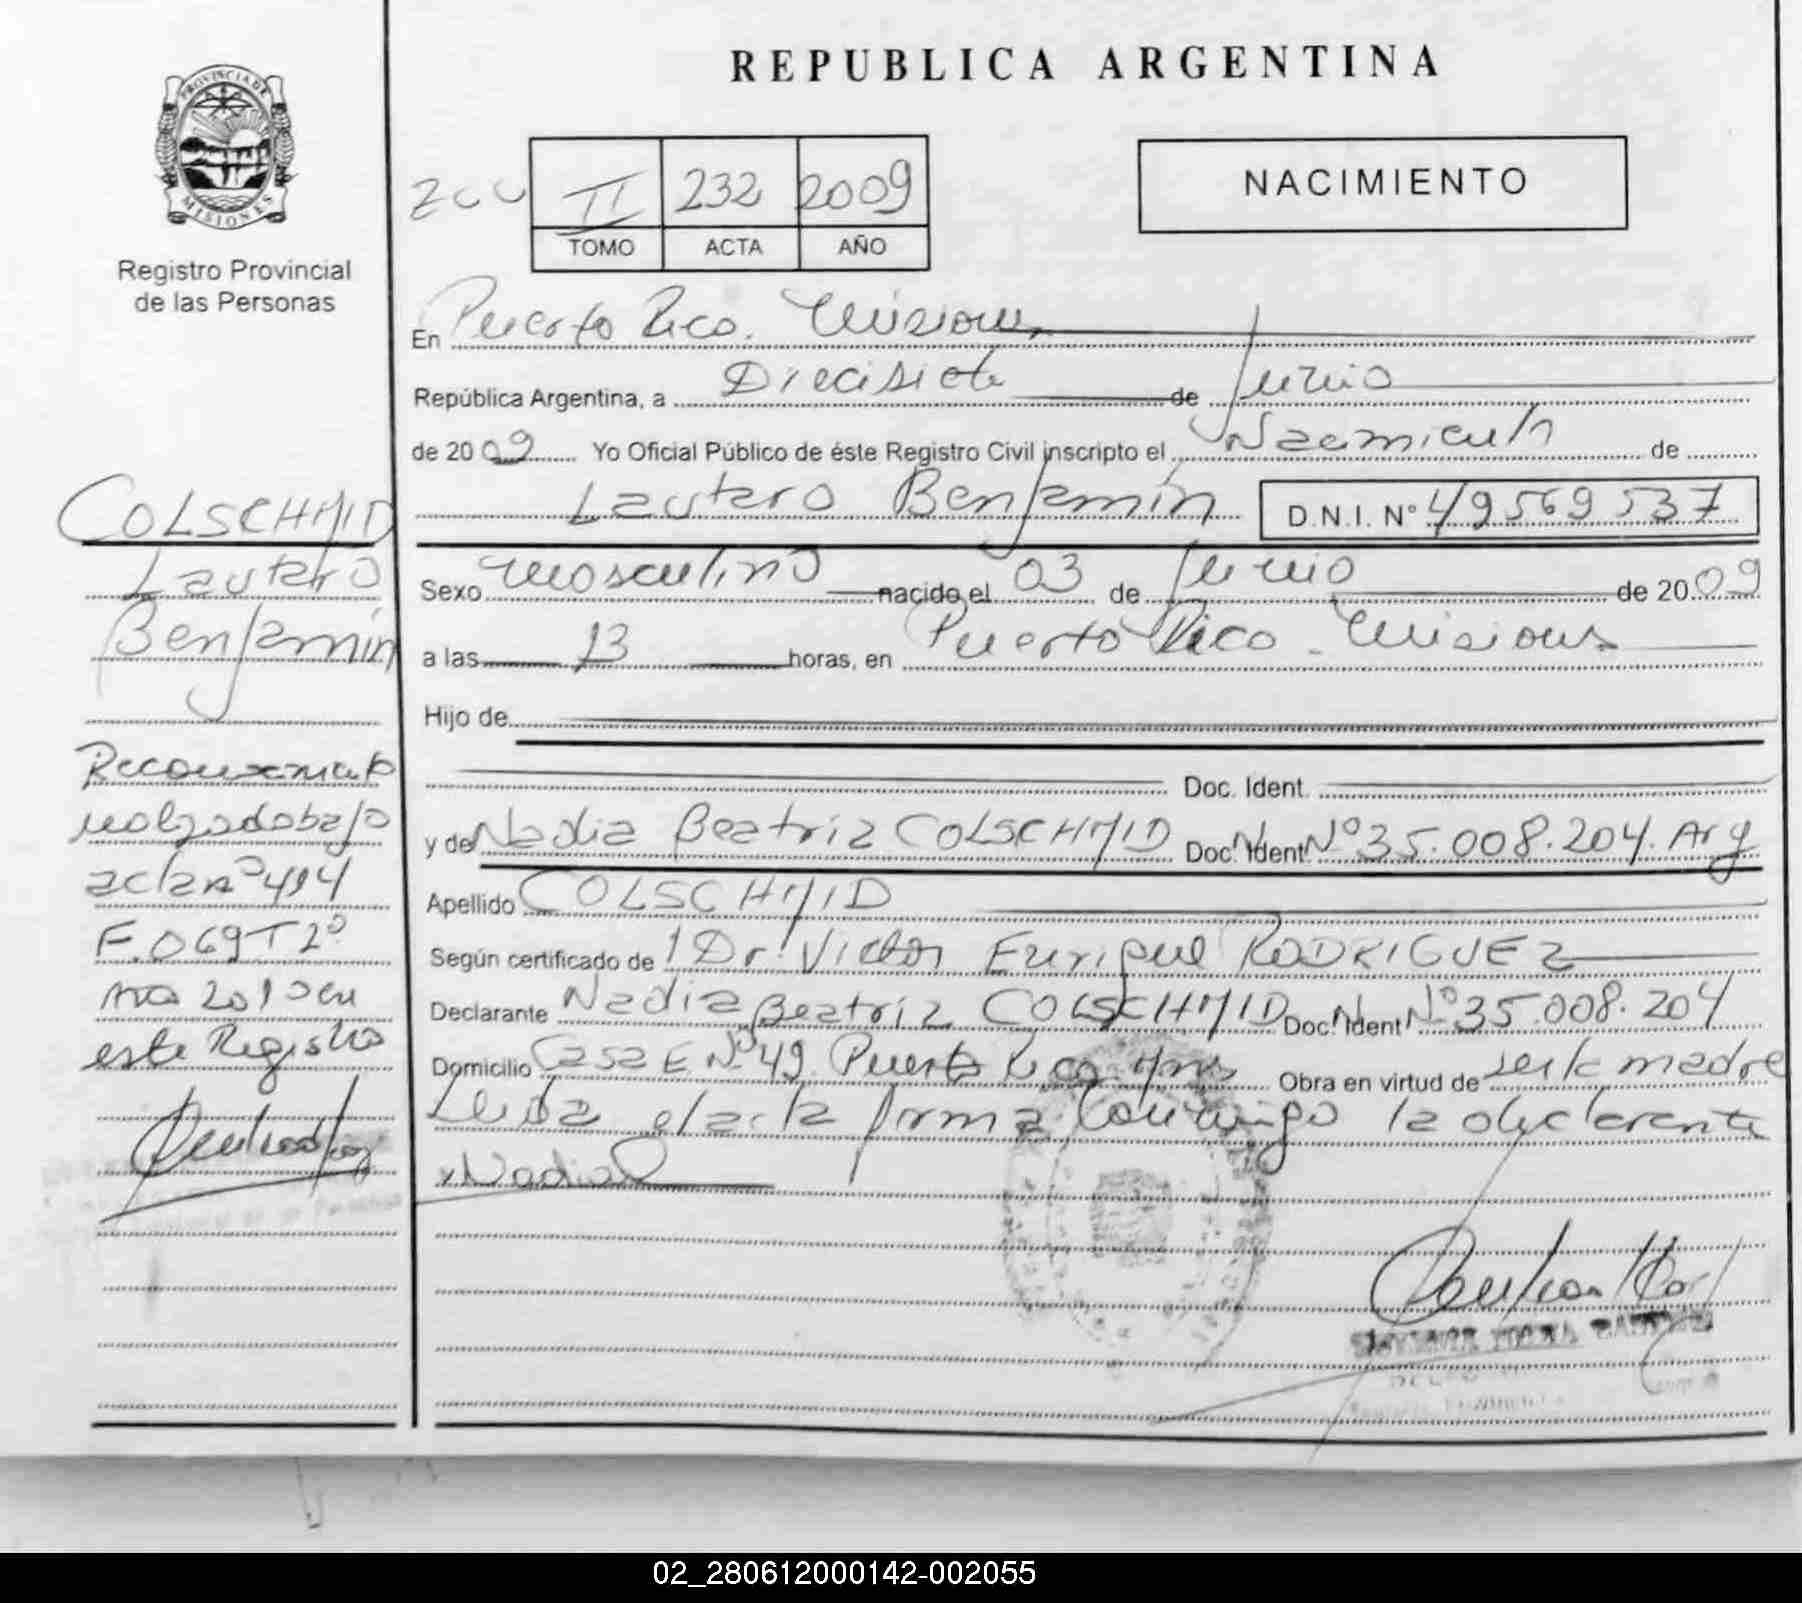 REPUBLICA ARGENTINA
PROVINCIA DE
MISIONES
Registro Provincial
de las Personas
NACIMIENTO
II 232 2009
TOMO ACTA AÑO
En Puerto Rico. Misiones
República Argentina, a Diecisiete de Junio
de 2009 Yo Oficial Público de éste Registro Civil inscripto el Nacimiento de
Lautaro Benjamín D.N.I. Nº 49569537
Sexo masculino nacido el 03 de Junio de 2009
a las 13 horas, en Puerto Rico - Misiones
Hijo de
Doc. Ident.
y de Nadia Beatriz COLSCHMID Doc. Ident Nº 35.008.204. Arg
Apellido COLSCHMID
Según certificado de Dr. Victor Enrique RODRIGUEZ
Declarante Nadia Beatriz COLSCHMID Doc. Ident Nº 35.008.204
Domicilio Casa E Nº 49. Puerto Rico. Mnes Obra en virtud de ser la madre
Leida el acta firma conmigo la declarante
Nadia
COLSCHMID
Lautaro
Benjamín
Reconocimiento
realizado bajo
acta nº 414
F. 069 T 2º
Año 2010 en
este Registro
02_280612000142-002055